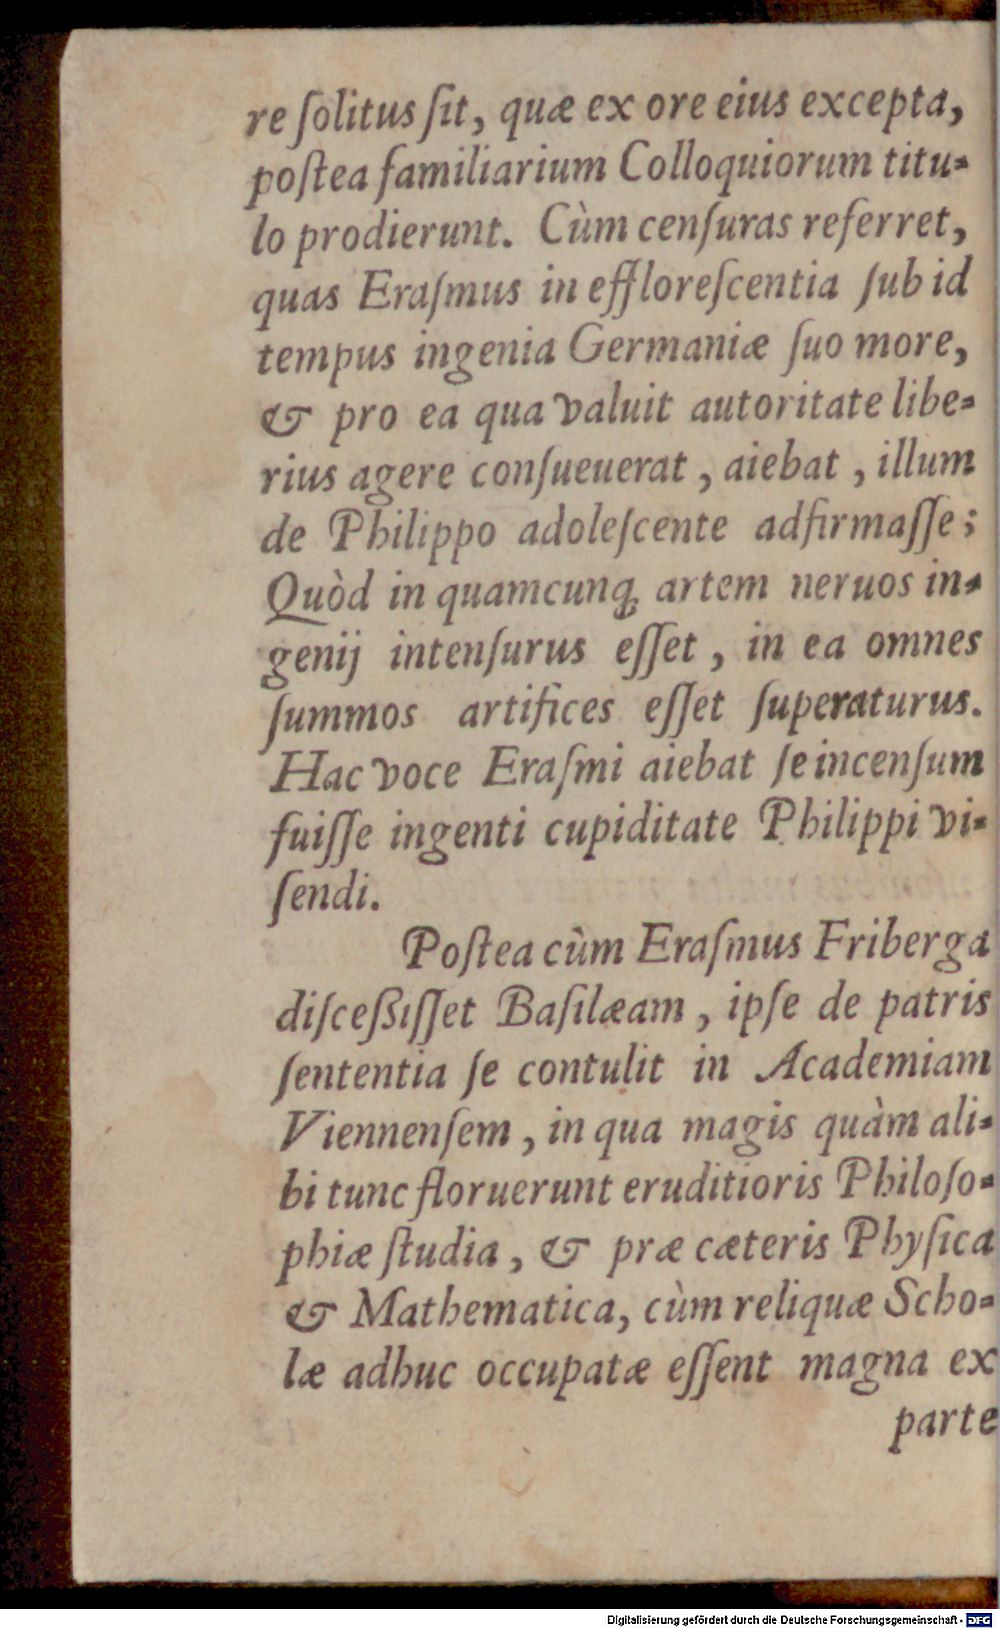 re ſolitus ſit, quæ ex ore eius excepta,
poſtea familiarium Colloquiorum titu-
lo prodierunt. Cùm cenſuras referret,
quas Eraſmus in effloreſcentia ſub id
tempus ingenia Germaniæ ſuo more,
& pro ea qua valuit autoritate libe-
rius agere conſueuerat, aiebat, illum
de Philippo adoleſcente adfirmaſſe;
Quòd in quamcunq; artem neruos in-
genij intenſurus eſſet, in ea omnes
ſummos artifices eſſet ſuperaturus.
Hac voce Eraſmi aiebat ſe incenſum
fuiſſe ingenti cupiditate Philippi vi-
ſendi.
Poſtea cùm Eraſmus Friberga
diſceßiſſet Baſilæam, ipſe de patris
ſententia ſe contulit in Academiam
Viennenſem, in qua magis quàm ali-
bi tunc floruerunt eruditioris Philoſo-
phiæ ſtudia, & præ cæteris Phyſica
& Mathematica, cùm reliquæ Scho-
læ adhuc occupatæ eſſent magna ex
parte
Digitalisierung gefördert durch die Deutsche Forschungsgemeinschaft - DFG